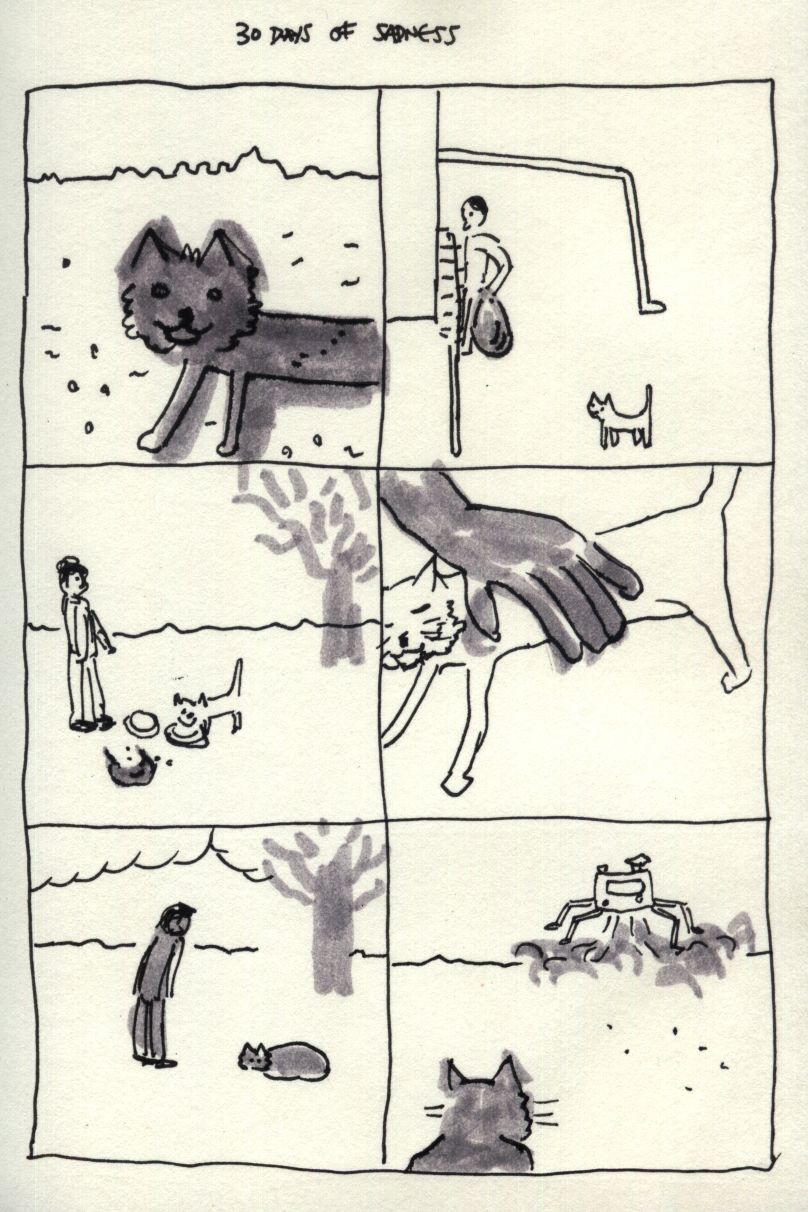 30 DAYS OF SADNESS